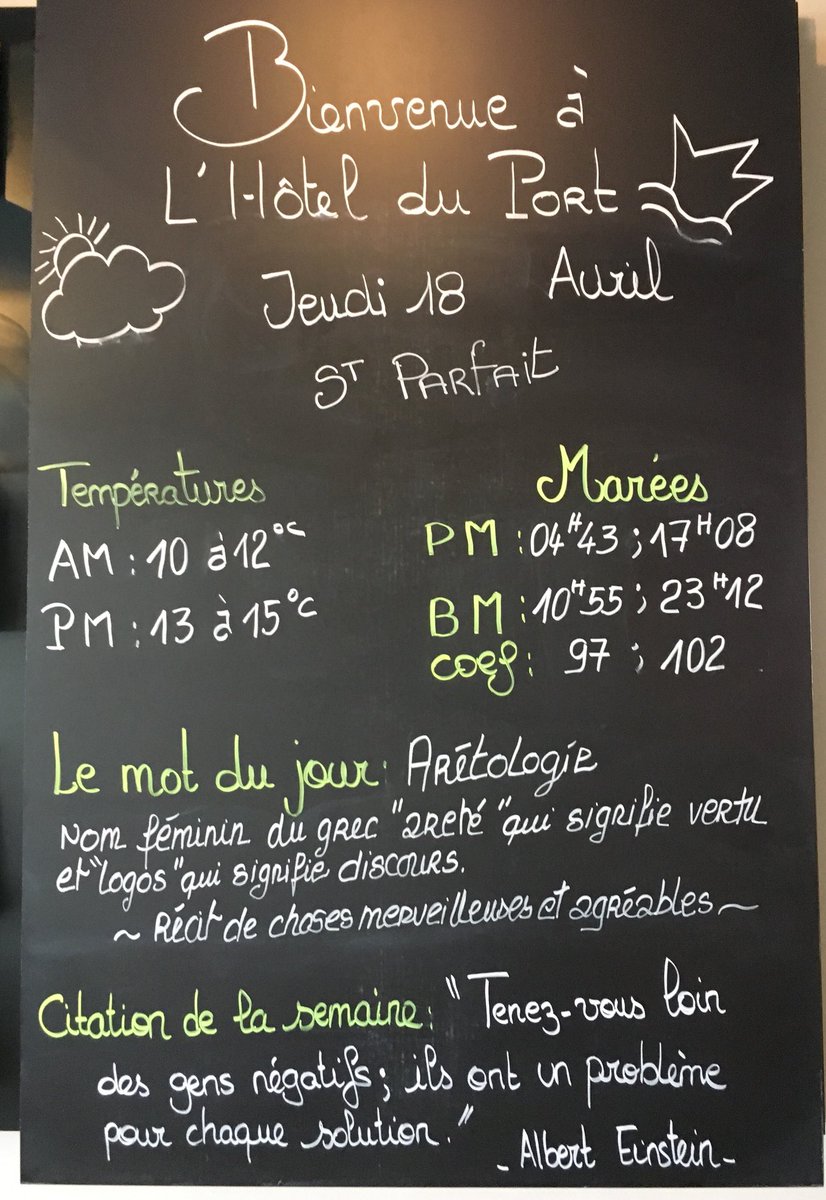 Bienvenue à
L'Hôtel du Port
Jeudi 18 Avril
St Parfait
Températures
AM : 10 à 12°C
PM : 13 à 15°C
Marées
PM : 04H43 ; 17H08
BM : 10H55 ; 23H12
coef : 97 ; 102
Le mot du jour : Arétologie
Nom féminin du grec "areté" qui signifie vertu
et "logos" qui signifie discours.
~ Récit de choses merveilleuses et agréables ~
Citation de la semaine : "Tenez-vous loin
des gens négatifs ; ils ont un problème
pour chaque solution."
- Albert Einstein -